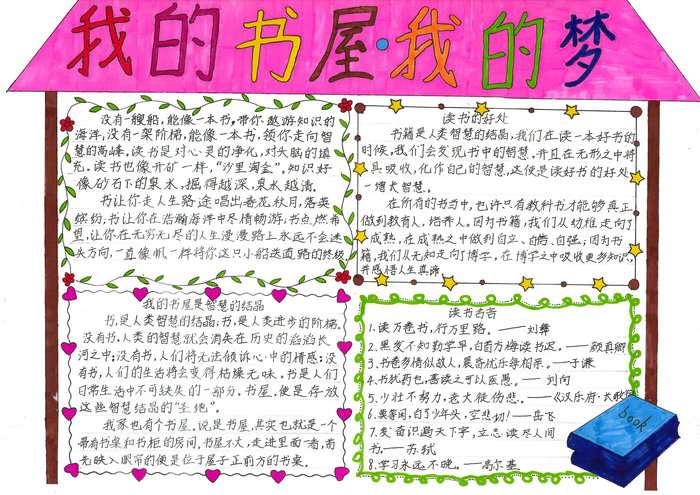 我的书屋·我的梦
没有一艘船,能像一本书,带你遨游知识的
海洋,没有一架阶梯,能像一本书,领你走向智
慧的高峰。读书是对心灵的净化,对大脑的填
充。读书也像开矿一样,“沙里淘金”,知识好
像砂石下的泉水,掘得越深,泉水越清。
书让你走人生路途唱出春花秋月,落英
缤纷,书让你在浩瀚海洋中尽情畅游,书点燃希
望,让你在无穷无尽的人生漫漫路上永远不会迷
失方向,一直像帆一样将你这只小船送回路的终极
读书的好处
书籍是人类智慧的结晶,我们在读一本好书的
时候,我们会发现书中的智慧,并且在无形之中将
其吸收,化作自己的智慧,这便是读好书的好处
—增大智慧。
在所有的书当中,也许只有教科书才能够真正
做到教育人,培养人。因为书籍,我们从幼稚走向了
成熟,在成熟之中做到自立、自信、自强;因为书
籍,我们从无知走向了博学,在博学之中吸收更多知识
并感悟人生真源
我的书屋是智慧的结晶
书,是人类智慧的结晶;书,是人类进步的阶梯,
没有书,人类的智慧就会消失在历史的滔滔长
河之中;没有书,人们将无法倾诉心中的情感;没
有书,人们的生活将会变得枯燥无味。书是人们
日常生活中不可缺失的一部分。书屋,便是存放
这些智慧结晶的“圣地”。
我家也有个书屋,说是书屋,其实也就是一个
带有书案和书柜的房间,书屋不大,走进里面一看,首
先映入眼帘的便是位于屋子正前方的书案。
读书名言
1.读万卷书,行万里路。——刘彝
2.黑发不知勤学早,白首方悔读书迟。——颜真卿
3.书卷多情似故人,晨昏忧乐每相亲。——于谦
4.书犹药也,善读之可以医愚。——刘向
5.少壮不努力,老大徒伤悲。——《汉乐府·长歌行》
6.莫等闲,白了少年头,空悲切!——岳飞
7.发奋识遍天下字,立志读尽人间
书。——苏轼
8.学习永远不晚。——高尔基
book